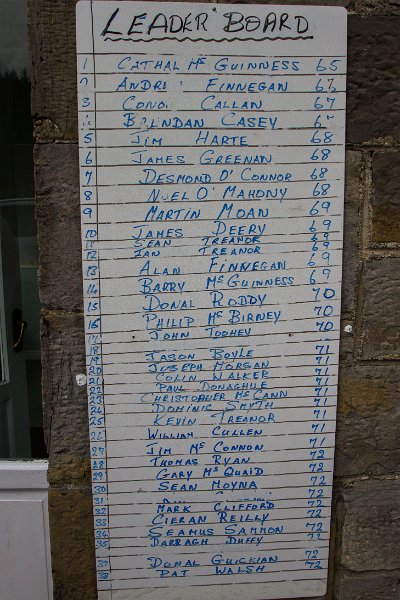 LEADER BOARD
1 CATHAL Mc GUINNESS 65
FINNEGAN
3 CALLAN 67
CASEY
5 JIM HARTE 68
6 JAMES GREENAN 68
7 DESMOND O'CONNOR 68
8 NOEL O'MAHONY 68
9 MARTIN MOAN 69
10 JAMES DEERY 69
11 SEAN TREANOR 69
12 IAN TREANOR 69
13 ALAN FINNEGAN 69
14 BARRY Mc GUINNESS 69
15 DONAL RODDY 70
16 PHILIP Mc BIRNEY 70
17 JOHN TOOHEY 70
18
19 JASON BOYLE 71
20 JOSEPH MORGAN 71
21 COLIN WALKER 71
22 PAUL DONAGHUE 71
23 CHRISTOPHER Mc CANN 71
24 DOMINIC SMYTH 71
25 KEVIN TREANOR 71
26 WILLIAM CULLEN 71
27 JIM Mc CONNON 71
28 THOMAS RYAN 72
29 GARY Mc QUAID 72
30 SEAN MOYNA 72
31 72
32 MARK CLIFFORD 72
33 CIERAN REILLY 72
34 SEAMUS SAMMON 72
35 DARRAGH DUFFY 72
37 DONAL 72
38 PAT WALSH 72